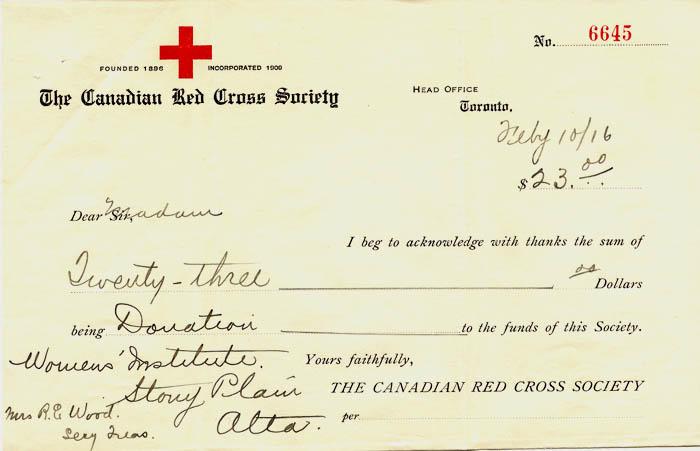 No. 6645
FOUNDED 1896 INCORPORATED 1909
The Canadian Red Cross Society
HEAD OFFICE
Toronto.
Feby 10/16
$ 23.00
Dear Sir, Madam
I beg to acknowledge with thanks the sum of
Twenty-three 00 Dollars
being Donation to the funds of this Society.
Womens' Institute. Yours faithfully,
Stony Plain THE CANADIAN RED CROSS SOCIETY
Mrs R.E Wood. Alta. per
Secy Treas.